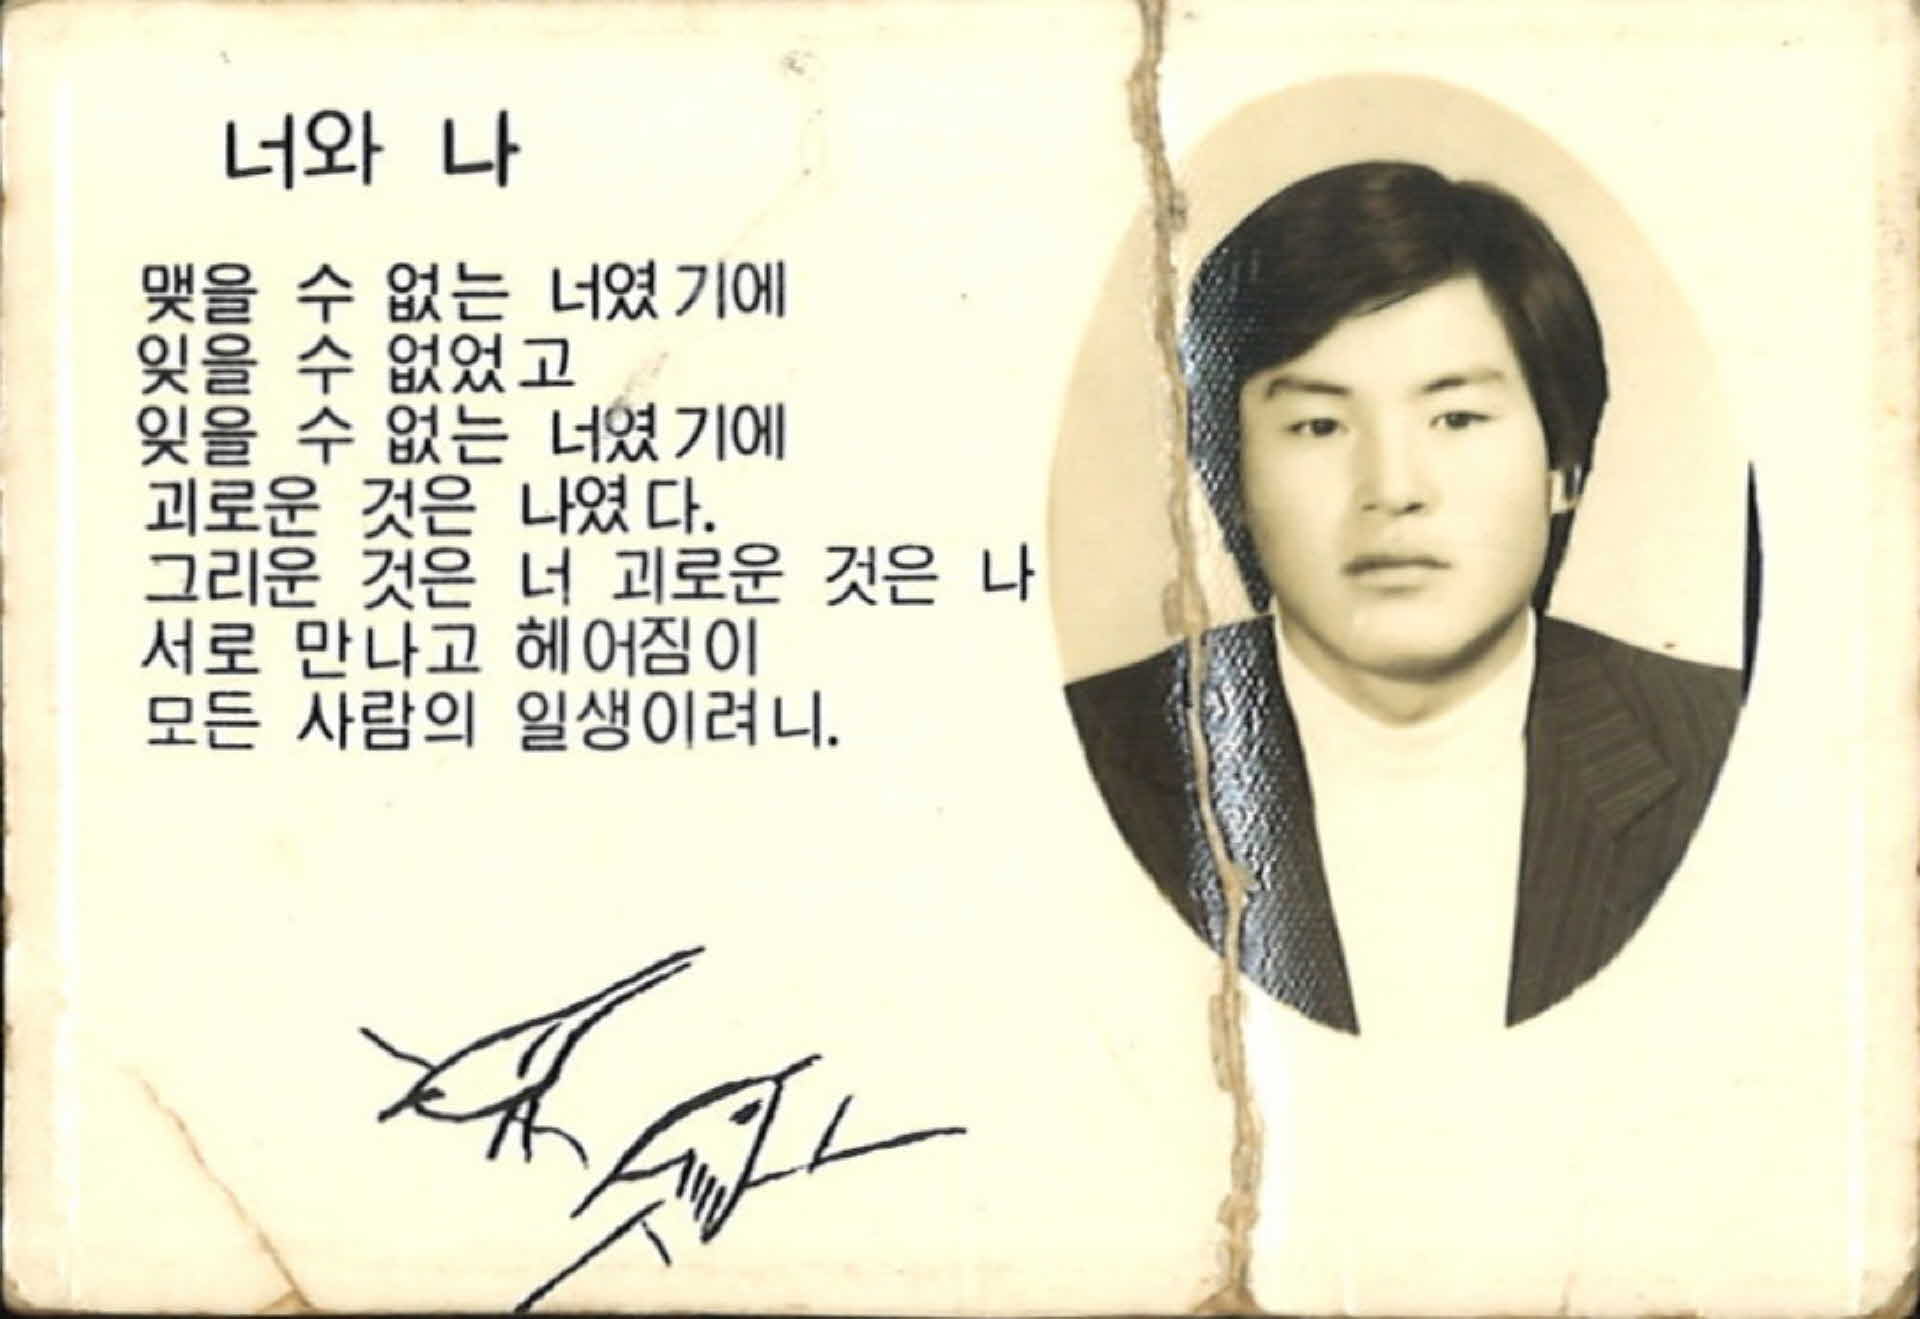 너와 나
맺을 수 없는 너였기에
잊을 수 없었고
잊을 수 없는 너였기에
괴로운 것은 나였다.
그리운 것은 너 괴로운 것은 나
서로 만나고 헤어짐이
모든 사람의 일생이려니.